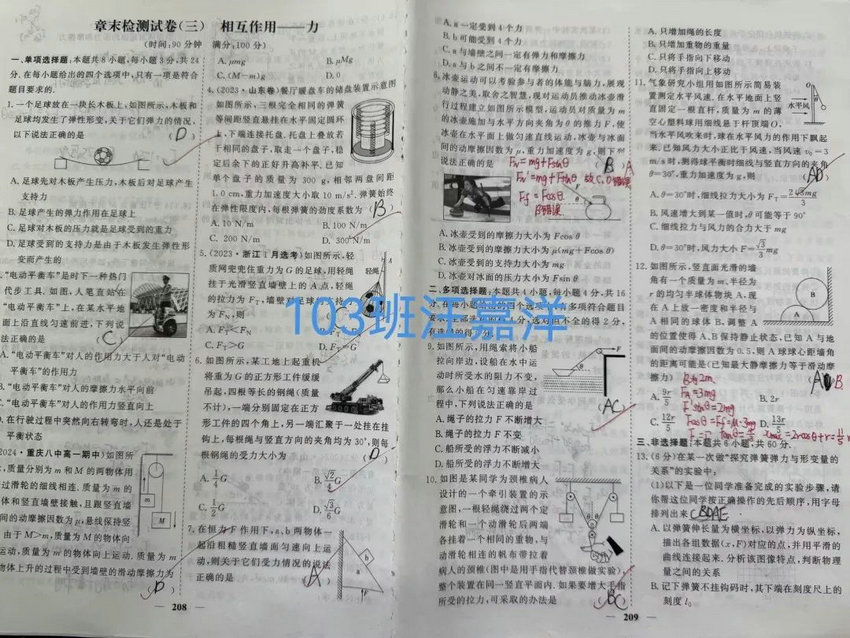 章末检测试卷(三) 相互作用——力
(时间:90分钟 满分:100分)
一、单项选择题:本题共8小题,每小题3分,共24
分.在每小题给出的四个选项中,只有一项是符合
题目要求的.
1.一个足球放在一块长木板上,如图所示,木板和
足球均发生了弹性形变,关于它们弹力的情况,
以下说法正确的是 (D)
A.足球先对木板产生压力,木板后对足球产生
支持力
B.足球产生的弹力作用在足球上
C.足球对木板的压力就是足球受到的重力
D.足球受到的支持力是由于木板发生弹性形
变而产的
"电动平衡车"是时下一种热门
代步工具.如图,人笔直站在
"电动平衡车"上,在某水平地
面上沿直线匀速前进,下列说
法正确的是 C
A."电动平衡车"对人的作用力大于人对"电动
平衡车"的作用力
B."电动平衡车"对人的摩擦力水平向前
C."电动平衡车"对人的作用力竖直向上
D.在行驶过程中突然向右转弯时,人还是处于
平衡状态
2024·重庆八中高一期中)如
,质量分别为m和M的两物体用
过滑轮的细线相连.质量为m的
体和竖直墙壁接触,且跟竖直墙
间的动摩擦因数为μ,悬线保持竖
由于M>m,质量为M的物体向
运动,质量为m的物体向上运动.质量为m
物体上升的过程中受到墙壁的滑动摩擦力为
(D)
208
A.μmg B.μMg
C.(M-m)g D.0
4.(2023·山东卷)餐厅暖盘车的储盘装置示意图
如图所示,三根完全相同的弹簧
等间距竖直悬挂在水平固定圆环
上,下端连接托盘.托盘上叠放若
干相同的盘子,取走一个盘子,稳
定后余下的正好升高补平.已知
单个盘子的质量为300 g,相邻两盘间距
1.0 cm,重力加速度大小取10 m/s².弹簧始终
在弹性限度内,每根弹簧的劲度系数为 (B)
A.10 N/m B.100 N/m
C.200 N/m D.300 N/m
5.(2023·浙江1月选考)如图所示,轻
质网兜兜住重力为G的足球,用轻绳
挂于光滑竖直墙壁上的A点,轻绳
的拉力为F_T,墙壁对足球的
为F_N,则
A.F_T<F_N
C.F_T>G D.F_T=G
6.如图所示,某工地上起重机
将重为G的正方形工件缓缓
吊起.四根等长的钢绳(质量
不计),一端分别固定在正方
形工件的四个角上,另一端汇聚于一处挂在挂
钩上,每根绳与竖直方向的夹角均为30°,则每
根钢绳的受力大小为 (D)
A.1/4 G B.√2/4 G
C.1/2 G D.√3/6 G
7.在恒力F作用下,a、b两物体一
起沿粗糙竖直墙面匀速向上运
动,则关于它们受力情况的说法
正确的是 (A)
A.a一定受到4个力
B.b可能受到4个力
C.a与墙壁之间一定有弹力和摩擦力
D.a与b之间不一定有摩擦力
8.冰壶运动可以考验参与者的体能与脑力,展现
动静之美,取舍之智慧.现对运动员推动冰壶滑
行过程建立如图所示模型,运动员对质量为m
的冰壶施加与水平方向夹角为θ的推力F,使
冰壶在水平面上做匀速直线运动,冰壶与冰面
间的动摩擦因数为μ,重力加速度为g,则下列
说法正确的是 (B) A
F_N=mg+Fsinθ
F_N'=mg+Fsinθ 故C,D错误
F_f=Fcosθ
B错误
A.冰壶受到的摩擦力大小为Fcos θ
B.冰壶受到的摩擦力大小为μ(mg+Fcos θ)
C.冰壶受到的支持力大小为mg
D.冰壶对冰面的压力大小为Fsin θ
二、多项选择题:本题共4小题,每小题4分,共16
分.在每小题给出的四个选项中,有多项符合题目
要求.全部选对的得4分,选对但不全的得2分,
有选错的得0分.
9.如图所示,用绳索将小船
拉向岸边,设船在水中运
动时所受水的阻力不变,
那么小船在匀速靠岸过
程中,下列说法正确的是 (AC)
A.绳子的拉力F不断增大
B.绳子的拉力F不变
C.船所受的浮力不断减小
D.船所受的浮力不断增大
10.如图是某同学为颈椎病人
设计的一个牵引装置的示
意图,一根轻绳绕过两个定
滑轮和一个动滑轮后两端
各挂着一个相同的重物,与
动滑轮相连的帆布带拉着
病人的颈椎(图中是用手指代替颈椎做实验),
整个装置在同一竖直平面内.如果要增大手指
所受的拉力,可采取的办法是 (BC)
209
A.只增加绳的长度
B.只增加重物的重量
C.只将手指向下移动
D.只将手指向上移动
11.气象研究小组用如图所示简易装
置测定水平风速.在水平地面上竖
直固定一根直杆,质量为m的薄
空心塑料球用细线悬于杆顶端O,
当水平风吹来时,球在水平风力的作用下飘起
来.已知风力大小正比于风速,当风速v₀=3
m/s时,测得球平衡时细线与竖直方向的夹角
θ=30°,重力加速度为g,则 (AD)
水平风
A.θ=30°时,细线拉力大小为F_T=2√3mg/3
B.风速增大到某一值时,θ可能等于90°
C.细线拉力与风力的合力大于mg
D.θ=30°时,风力大小F=√3/3 mg
12.如图所示,竖直面光滑的墙
角有一个质量为m、半径为
r的均匀半球体物块A,现
在A上放一密度和半径与
A相同的球体B,调整A
的位置使得A、B保持静止状态,已知A与地
面间的动摩擦因数为0.5.则A球球心距墙角
的距离可能是(已知最大静摩擦力等于滑动摩
擦力) (AB) B
A.9r/5 B.2r
C.12r/5 D.13r/5
三、非选择题:本题共6小题,共60分.
13.(6分)在某一次做"探究弹簧弹力与形变量的
关系"的实验中:
(1)以下是一位同学准备完成的实验步骤,请
你帮这位同学按正确操作的先后顺序,用字母
排列出来:CBDAE.
A.以弹簧伸长量为横坐标,以弹力为纵坐标,
描出各组数据(x,F)对应的点,并用平滑的
曲线连接起来.分析该图像特点,判断物理
量之间的关系
B.记下弹簧不挂钩码时,其下端在刻度尺上的
刻度l₀
103班汪嘉洋